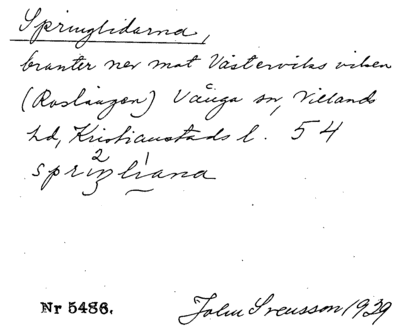 Springlidarna,
branter ner mot Västerviks viken
(Roslången) Vånga sn, Villands
hd, Kristianstads l. 54
spriŋ²liana
Nr 5486.
John Svensson 1939